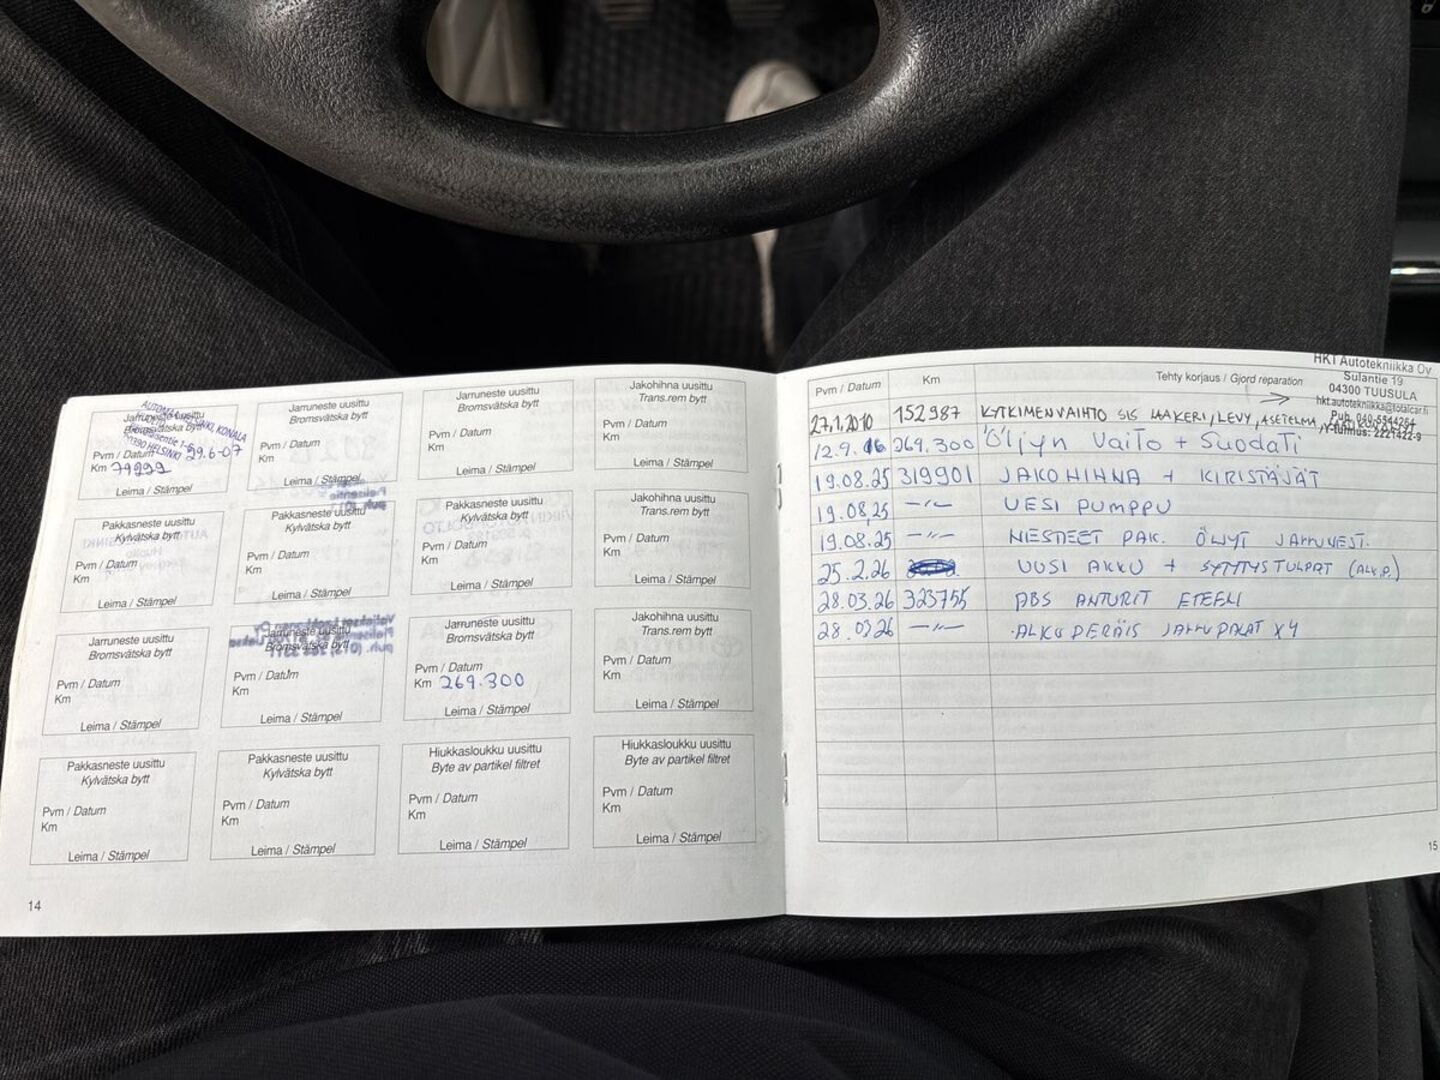 Jarruneste uusittu
Bromsvätska bytt
Pvm / Datum 29.6-07
Km 79299
Leima / Stämpel
Jarruneste uusittu
Bromsvätska bytt
Pvm / Datum
Km
Leima / Stämpel
Jarruneste uusittu
Bromsvätska bytt
Pvm / Datum
Km
Leima / Stämpel
Jakohihna uusittu
Trans.rem bytt
Pvm / Datum
Km
Leima / Stämpel
Pakkasneste uusittu
Kylvätska bytt
Pvm / Datum
Km
Leima / Stämpel
Pakkasneste uusittu
Kylvätska bytt
Pvm / Datum
Km
Leima / Stämpel
Pakkasneste uusittu
Kylvätska bytt
Pvm / Datum
Km
Leima / Stämpel
Jakohihna uusittu
Trans.rem bytt
Pvm / Datum
Km
Leima / Stämpel
Jarruneste uusittu
Bromsvätska bytt
Pvm / Datum
Km
Leima / Stämpel
Jarruneste uusittu
Bromsvätska bytt
Pvm / Datum
Km
Leima / Stämpel
Jarruneste uusittu
Bromsvätska bytt
Pvm / Datum
Km 269.300
Leima / Stämpel
Jakohihna uusittu
Trans.rem bytt
Pvm / Datum
Km
Leima / Stämpel
Pakkasneste uusittu
Kylvätska bytt
Pvm / Datum
Km
Leima / Stämpel
Pakkasneste uusittu
Kylvätska bytt
Pvm / Datum
Km
Leima / Stämpel
Hiukkasloukku uusittu
Byte av partikel filtret
Pvm / Datum
Km
Leima / Stämpel
Hiukkasloukku uusittu
Byte av partikel filtret
Pvm / Datum
Km
Leima / Stämpel
14
HKT Autotekniikka Oy
Sulantie 19
04300 TUUSULA
hkt.autotekniikka@totalcar.fi
Puh. 040-5944264
Y-tunnus: 2221422-9
Pvm / Datum Km Tehty korjaus / Gjord reparation
27.1.2010 152987 KYTKIMENVAIHTO SIS LAAKERI, LEVY, ASETELMA,
12.9.16 269.300 Öljyn Vaito + Suodati
19.08.25 319901 JAKOHIHNA + KIRISTÄJÄT
19.08.25 -"- VESI PUMPPU
19.08.25 -"- NESTEET PAK. ÖLJYT JARRUNEST.
25.2.26 UUSI AKKU + SYTYTYSTULPAT (ALK.P.)
28.03.26 323755 ABS ANTURIT ETEEN
28.03.26 -"- ALKUPERÄIS JARRUPALAT X4
15